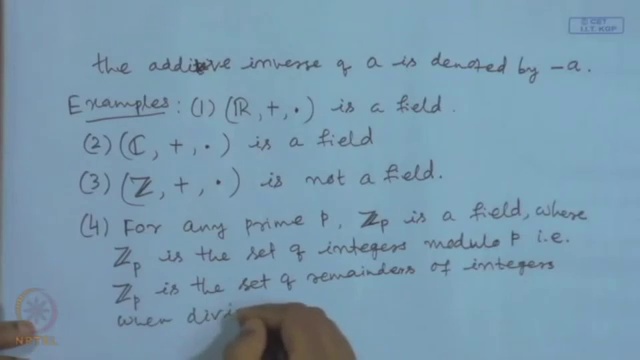 © CET
I.I.T. KGP
the additive inverse of a is denoted by -a.
Examples: (1) (ℝ, +, •) is a field.
(2) (ℂ, +, •) is a field
(3) (ℤ, +, •) is not a field.
(4) For any prime p, ℤp is a field, where
ℤp is the set of integers modulo p i.e.
ℤp is the set of remainders of integers
when divi
NPTEL